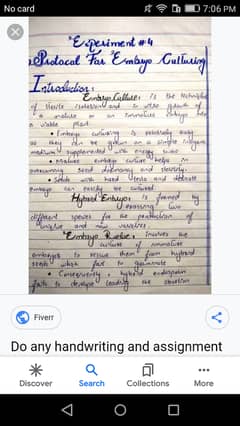 No card
7:06 PM
"Experiment #4
Protocol For Embryo Culturing
Introduction:
Embryo Culture: is the technique
of sterile isolation and in vitro growth of
a mature or an immature embryo into
a viable plant.
• Embryo culturing is relatively easy
as they can be grown on a simple inorganic
medium supplemented with energy source.
• Mature embryo culture helps in
overcoming seed dormancy and sterility.
• Seeds with hard testa and
embryo can easily be cultured.
Hybrid Embryo: is formed by
crossing two
different species for the production of
unique and new varieties.
"Embryo Rescue: involves the
culture of immature
embryos to rescue them from hybrid
seeds which fail to germinate
• Consequently, hybrid endosperm
fails to develop leading the abortion
Fiverr
Do any handwriting and assignment
Discover
Search
Collections
More